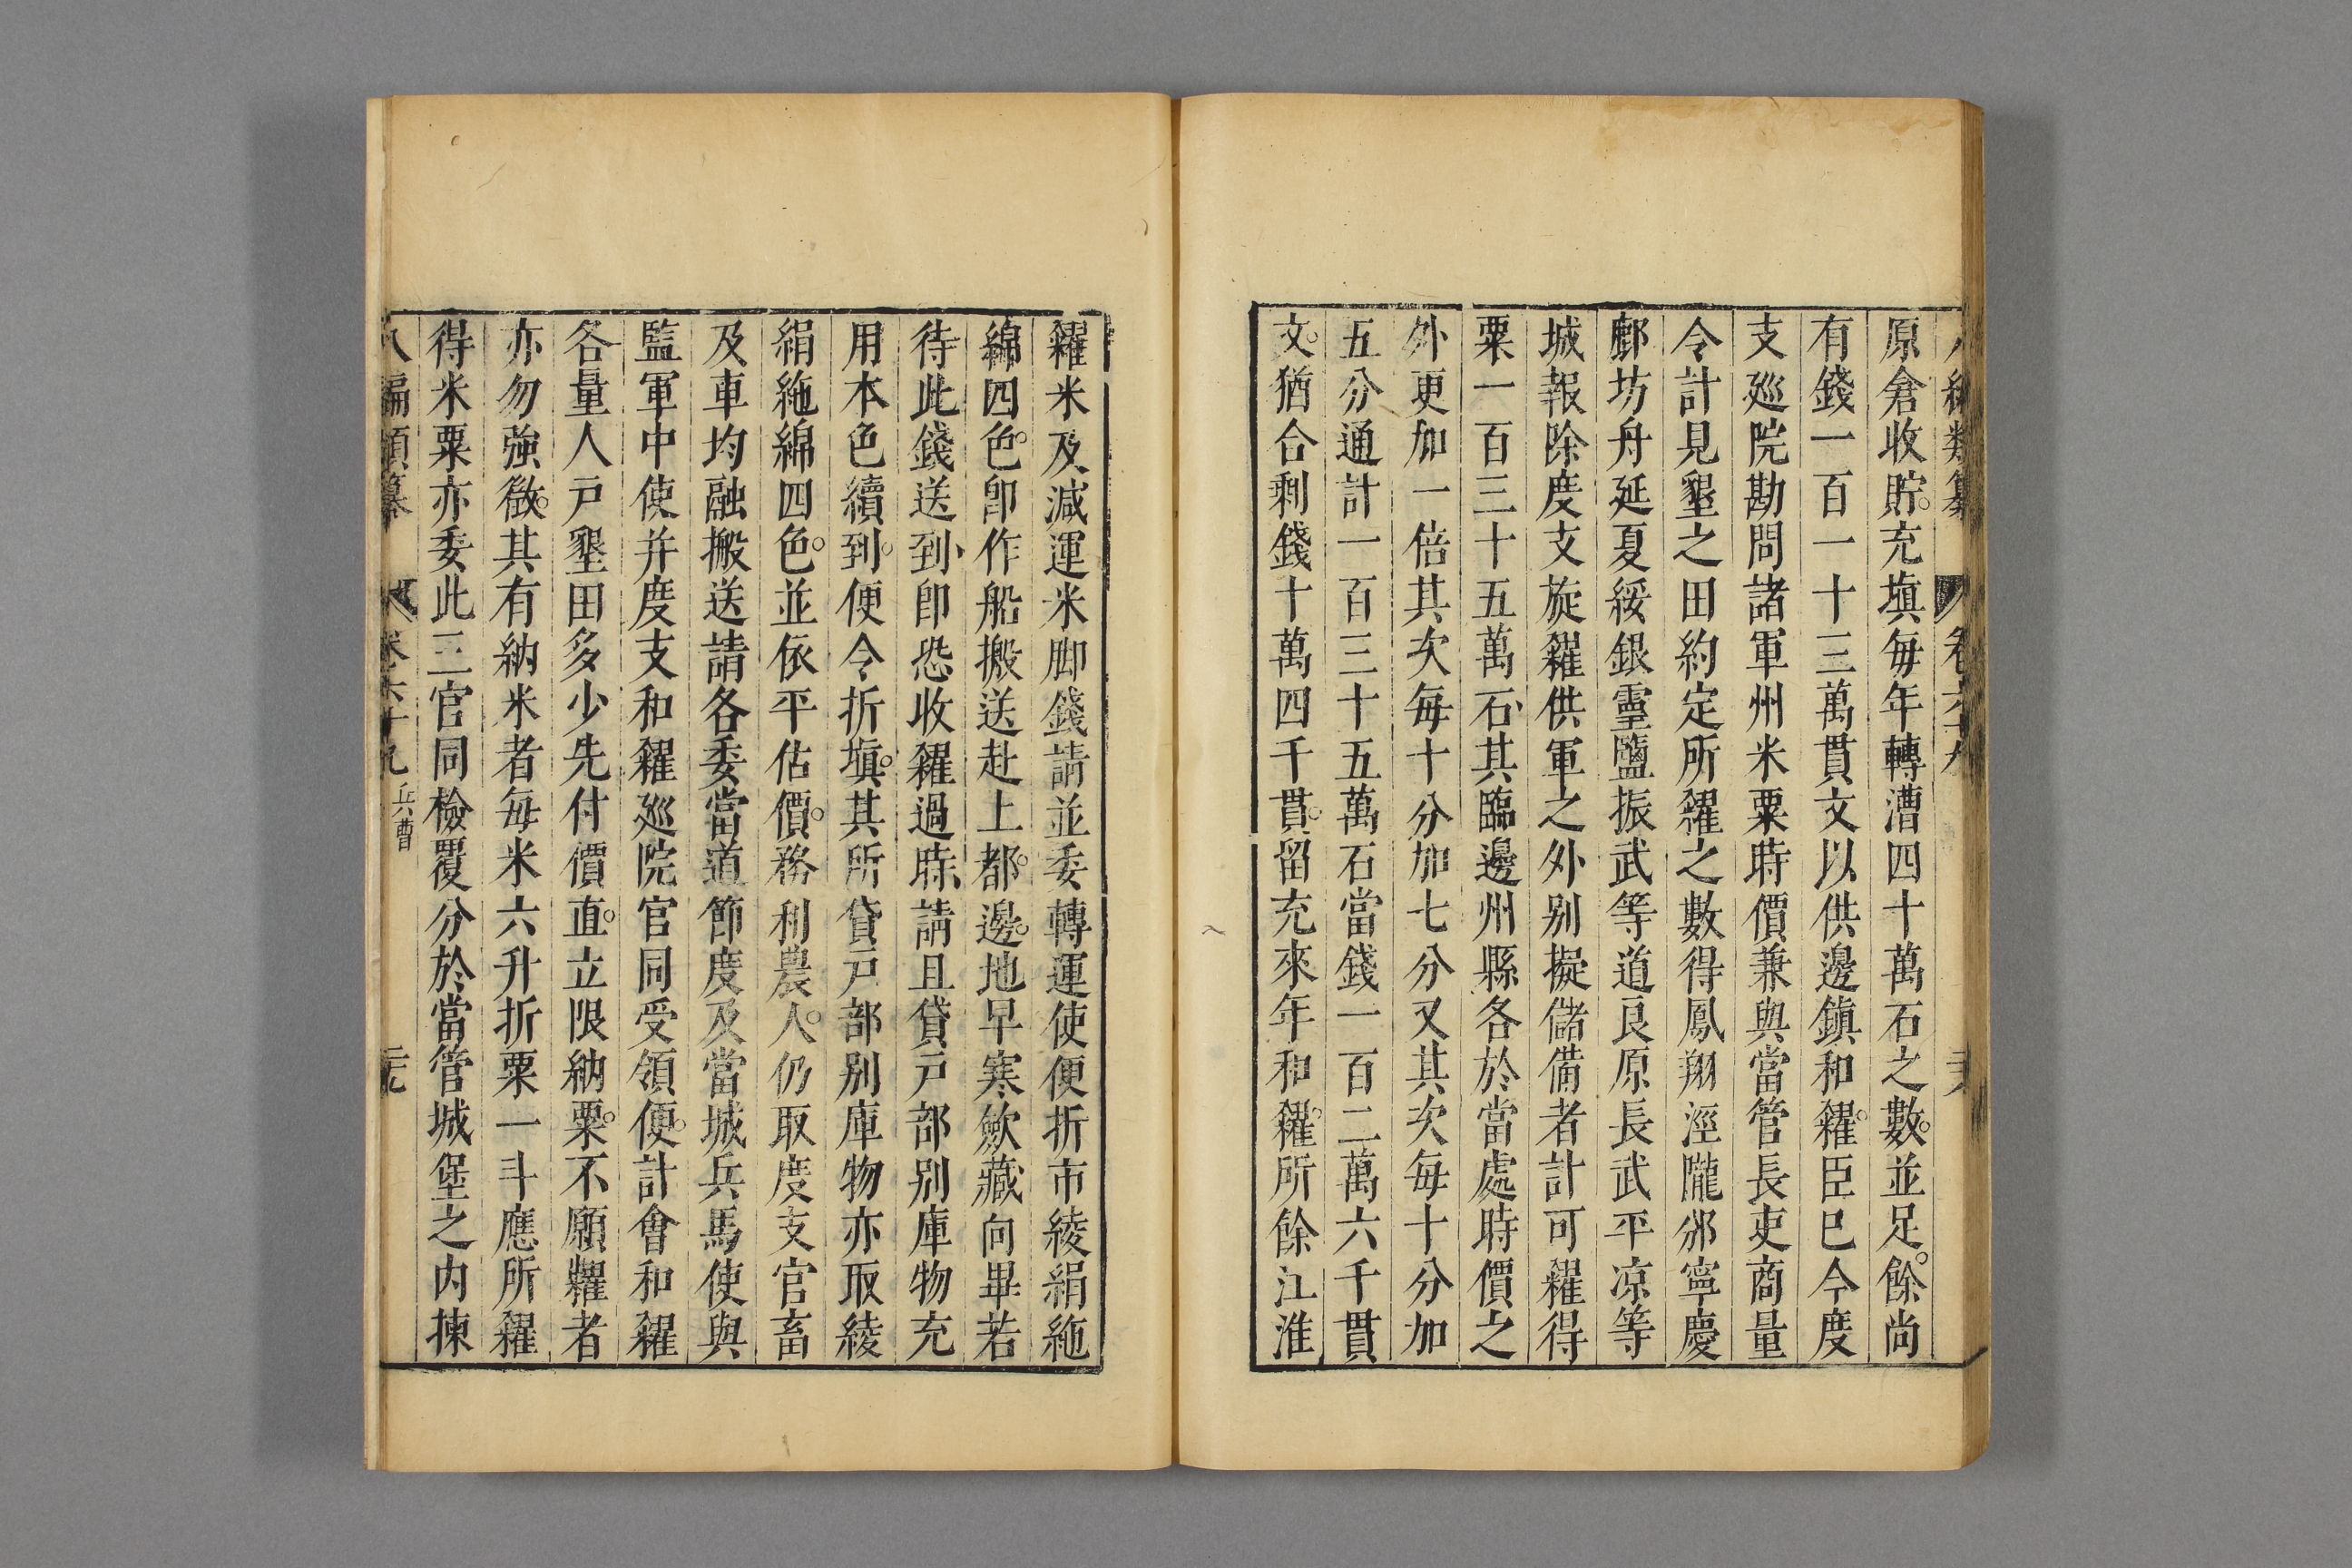 八編類纂 卷六十九
原倉收貯。充填毎年轉漕四十萬石之數。並足。餘尚
有錢一百一十三萬貫文以供邊鎮和糴。臣巳令度
支廵院勘問諸軍州米粟時價兼與當管長吏商量
令計見墾之田約定所糴之數得鳳翔涇隴邠寧慶
鄜坊舟延夏綏銀靈鹽振武等道良原長武平凉等
城報除度支旋糴供軍之外别擬儲備者計可糴得
粟一百三十五萬石其臨邊州縣各於當處時價之
外更加一倍其次毎十分加七分又其次毎十分加
五分通計一百三十五萬石當錢一百二萬六千貫
文。猶合剩錢十萬四千貫。留充來年和糴。所餘江淮
糴米及減運米脚錢請並委轉運使便折市綾絹絁
綿四色。卽作船搬送赴上都。邊。地早寒歛藏向畢若
待此錢送到卽恐收糴過時請且貸戸部别庫物充
用本色續到。便令折填。其所貸戸部别庫物亦取綾
絹絁綿四色。並依平估價。務利農人。仍取度支官畜
及車均融搬送請各委當道節度及當城兵馬使與
監軍中使并度支和糴廵院官同受領便。計會和糴
各量人戸墾田多少先付價直。立限納粟。不願糶者
亦勿強徵。其有納米者毎米六升折粟一斗應所糴
得米粟亦委此三官同檢覆分於當管城堡之内揀
八編類纂 卷六十九 兵曹 二十九